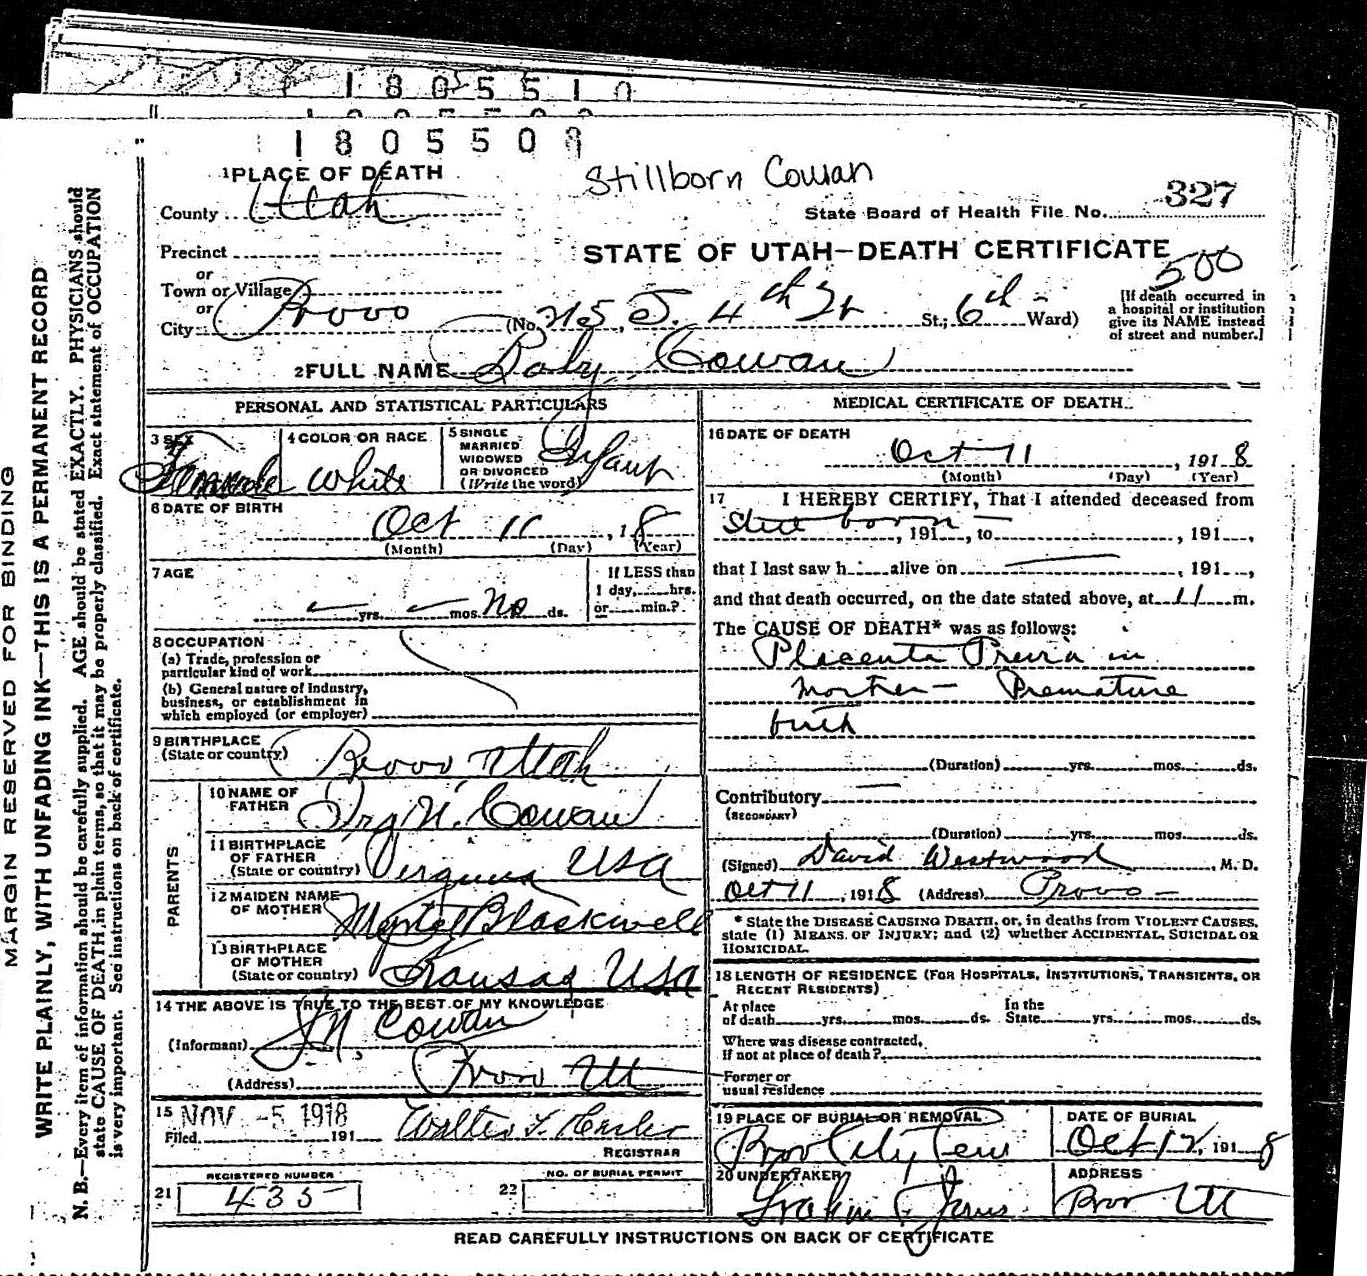 1805510
1805509
1 PLACE OF DEATH
Stillborn Cowan
County Utah
State Board of Health File No. 327
Precinct
STATE OF UTAH—DEATH CERTIFICATE
500
or
Town or Village
or
City Provo (No. 715 St.; 6th Ward)
[If death occurred in
a hospital or institution
give its NAME instead
of street and number.]
2 FULL NAME Baby Cowan
PERSONAL AND STATISTICAL PARTICULARS
3 SEX Female
4 COLOR OR RACE White
5 SINGLE
MARRIED
WIDOWED
OR DIVORCED
(Write the word) Infant
6 DATE OF BIRTH
Oct 11, 18
(Month) (Day) (Year)
7 AGE
yrs. mos. No ds.
If LESS than
1 day, hrs.
or min.?
8 OCCUPATION
(a) Trade, profession or
particular kind of work
(b) General nature of industry,
business, or establishment in
which employed (or employer)
9 BIRTHPLACE
(State or country) Provo Utah
PARENTS
10 NAME OF
FATHER N. Cowan
11 BIRTHPLACE
OF FATHER
(State or country) Virginia USA
12 MAIDEN NAME
OF MOTHER Blackwell
13 BIRTHPLACE
OF MOTHER
(State or country) Kansas USA
14 THE ABOVE IS TRUE TO THE BEST OF MY KNOWLEDGE
(Informant) Cowan
(Address) Provo Ut
15 NOV -5 1918
Filed 191 Walter
REGISTRAR
REGISTERED NUMBER
21 435
NO. OF BURIAL PERMIT
22
MEDICAL CERTIFICATE OF DEATH
16 DATE OF DEATH
Oct 11, 1918
(Month) (Day) (Year)
17 I HEREBY CERTIFY, That I attended deceased from
still born, 191 , to , 191 ,
that I last saw h alive on , 191 ,
and that death occurred, on the date stated above, at 11 m.
The CAUSE OF DEATH* was as follows:
Placenta Previa in
mother — Premature
birth
(Duration) yrs. mos. ds.
Contributory
(SECONDARY)
(Duration) yrs. mos. ds.
(Signed) David Westwood, M. D.
Oct 11, 1918 (Address) Provo
* State the DISEASE CAUSING DEATH, or, in deaths from VIOLENT CAUSES,
state (1) MEANS OF INJURY; and (2) whether ACCIDENTAL, SUICIDAL OR
HOMICIDAL.
18 LENGTH OF RESIDENCE (FOR HOSPITALS, INSTITUTIONS, TRANSIENTS, OR
RECENT RESIDENTS)
At place
of death yrs. mos. ds.
In the
State yrs. mos. ds.
Where was disease contracted,
if not at place of death?
Former or
usual residence
19 PLACE OF BURIAL OR REMOVAL
Provo City Cem
DATE OF BURIAL
Oct 12, 1918
20 UNDERTAKER
ADDRESS
Provo Ut
READ CAREFULLY INSTRUCTIONS ON BACK OF CERTIFICATE
MARGIN RESERVED FOR BINDING
WRITE PLAINLY, WITH UNFADING INK—THIS IS A PERMANENT RECORD
N. B.—Every item of information should be carefully supplied. AGE should be stated EXACTLY. PHYSICIANS should
state CAUSE OF DEATH in plain terms, so that it may be properly classified. Exact statement of OCCUPATION
is very important. See instructions on back of certificate.